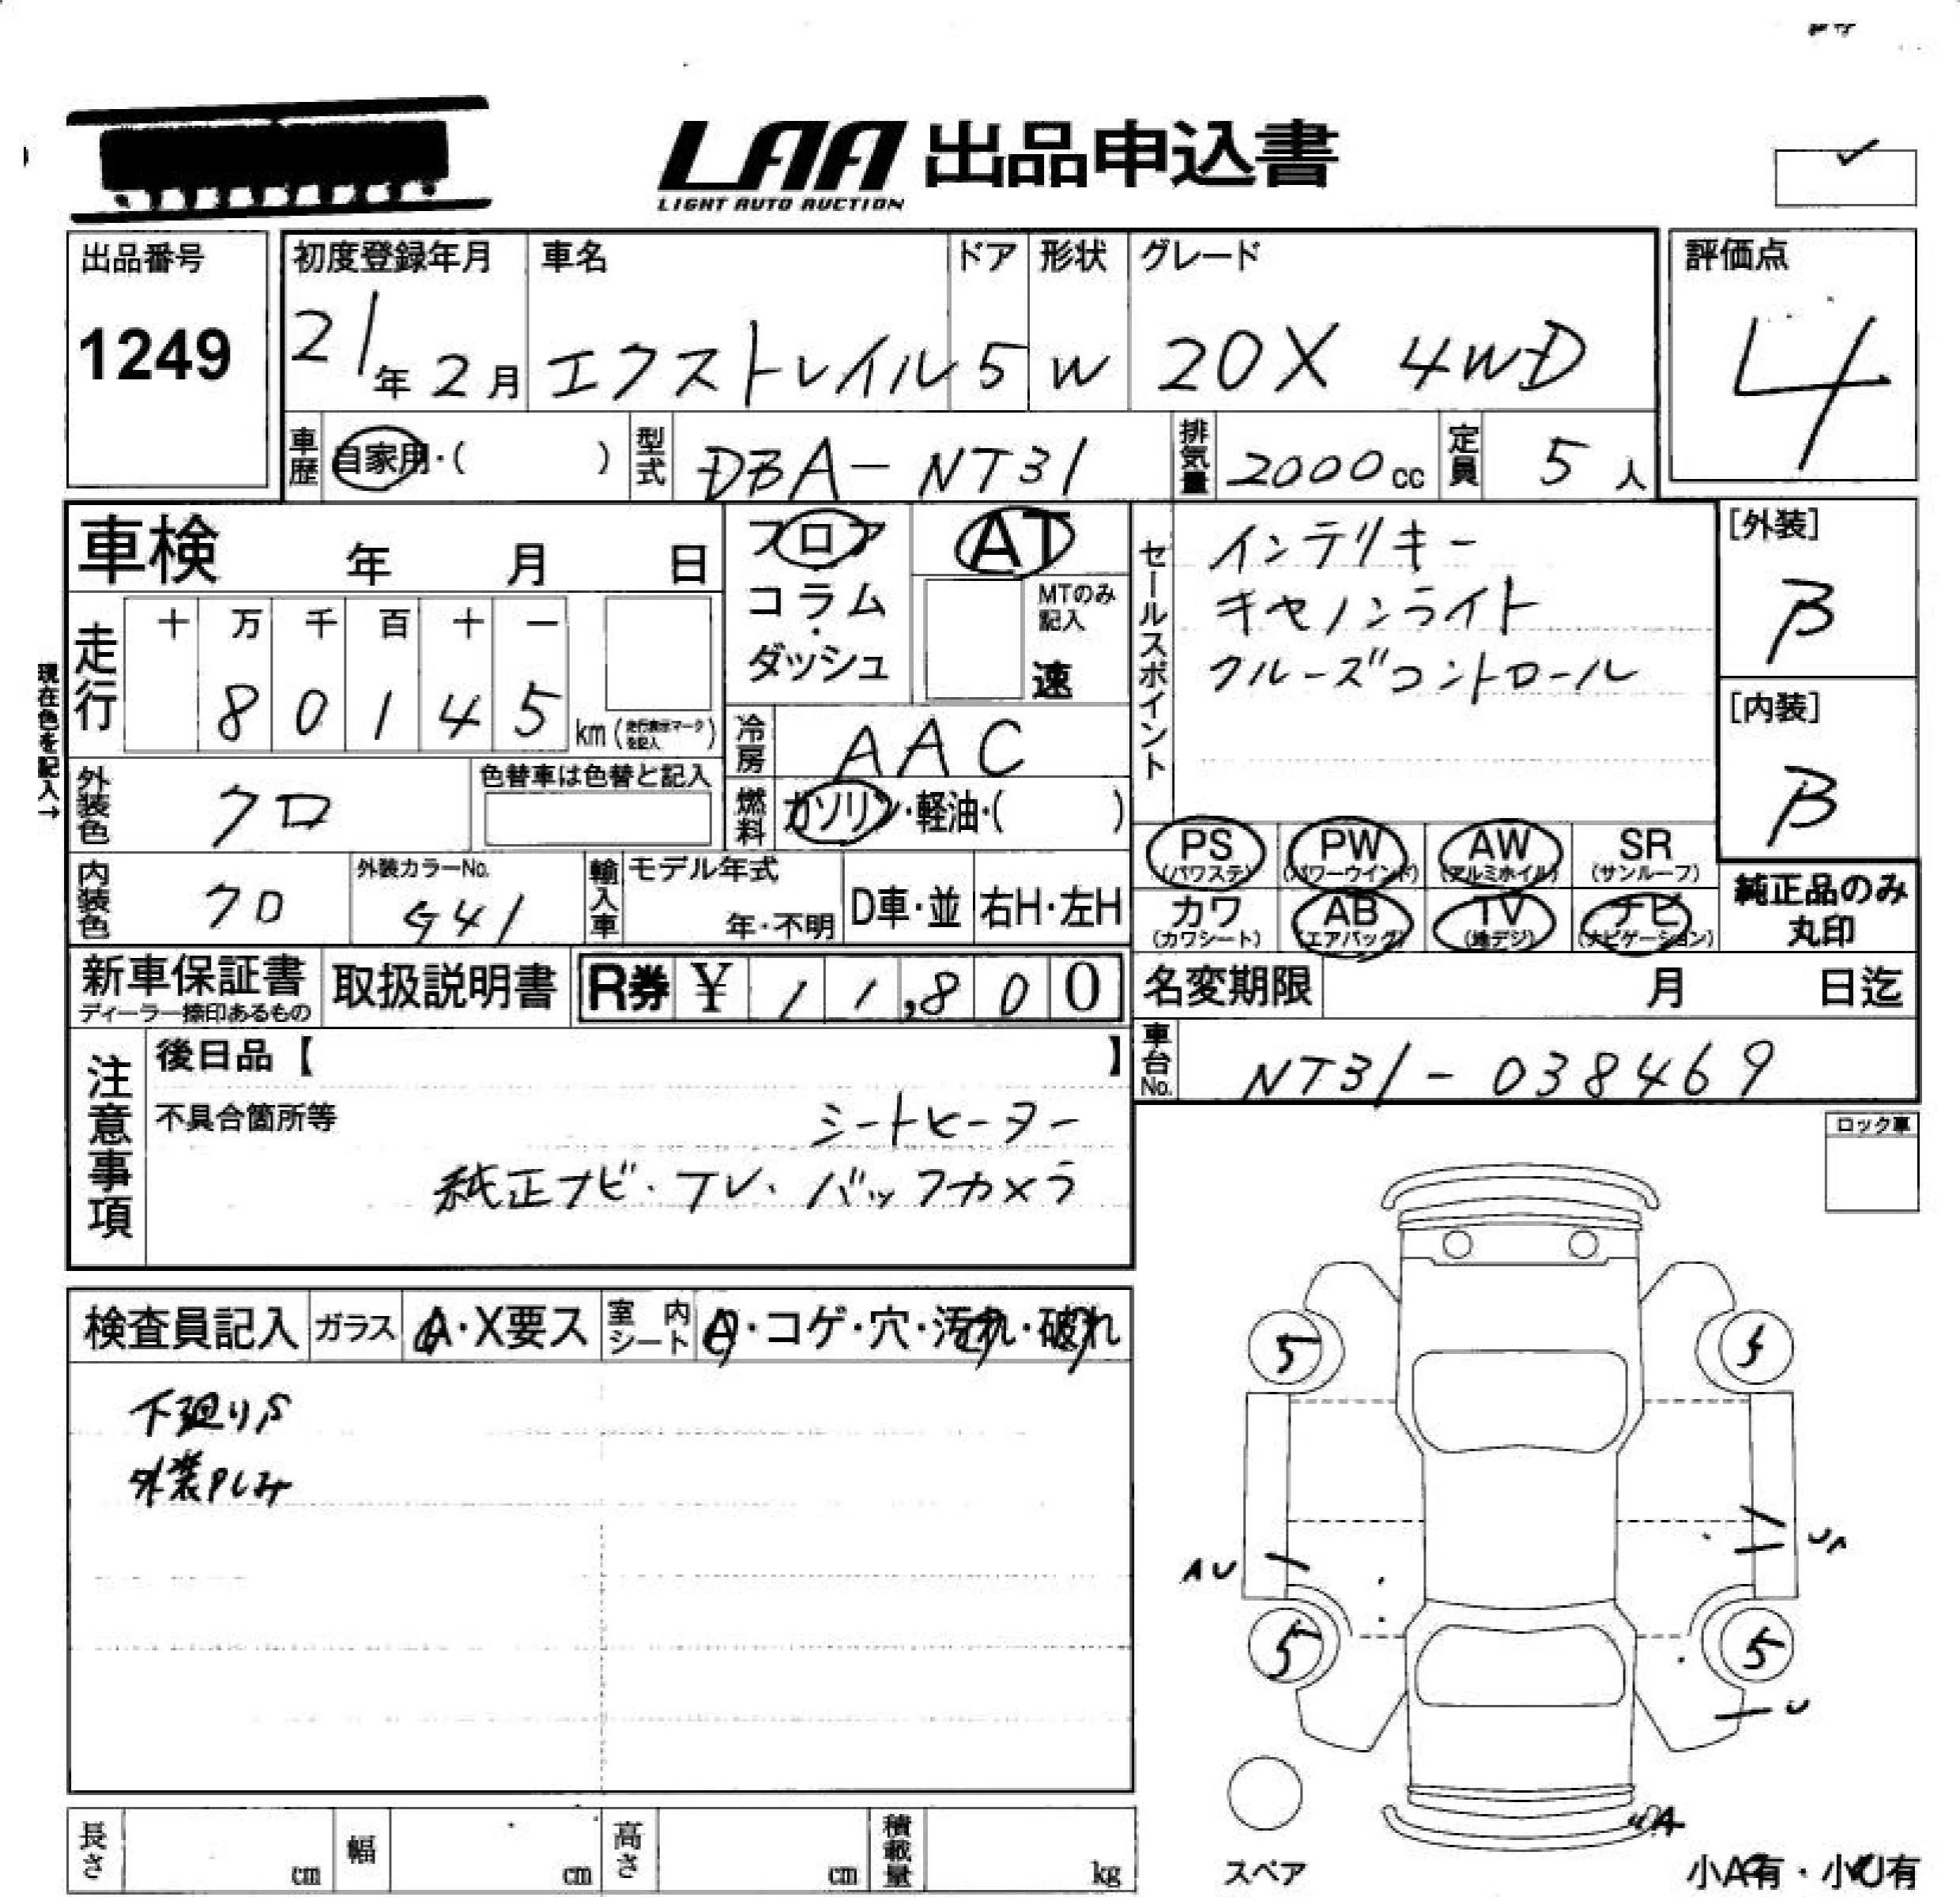 LAA 出品申込書
LIGHT AUTO AUCTION
出品番号 初度登録年月 車名 ドア 形状 グレード 評価点
1249 21年2月 エクストレイル 5 W 20X 4WD 4
車歴 自家用・( ) 型式 DBA-NT31 排気量 2000cc 定員 5人
車検 年 月 日
フロア AT
コラム・ダッシュ
MTのみ記入 速
セールスポイント
インテリキー
キセノンライト
クルーズコントロール
[外装]
B
[内装]
B
現在色を記入→
走行 十 万 千 百 十 一
80145 km(走行表示マークを記入)
冷房 AAC
外装色 クロ 色替車は色替と記入
燃料 ガソリン・軽油・( )
PS(パワステ) PW(パワーウインド) AW(アルミホイル) SR(サンルーフ)
内装色 クロ 外装カラーNo. G41 輸入車 モデル年式 年・不明 D車・並 右H・左H
カワ(カワシート) AB(エアバッグ) TV(地デジ) ナビ(ナビゲーション)
純正品のみ丸印
新車保証書 ディーラー捺印あるもの 取扱説明書 R券 ¥ 11,800
名変期限 月 日迄
車台No. NT31-038469
注意事項
後日品【 】
不具合箇所等 シートヒーター
純正ナビ・TV・バックカメラ
ロック車
検査員記入 ガラス A・X要ス 室内シート ・コゲ・穴・汚れ・破れ
下廻りS
5 5
AU UA
5 5
U
A
長さ cm 幅 cm 高さ cm 積載量 kg
スペア
小A有・小U有